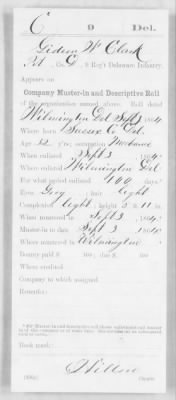 C 9 Del.
Gideon W Clark
Pvt, Co. G, 9 Reg't Delaware Infantry.
Appears on
Company Muster-in and Descriptive Roll
of the organization named above. Roll dated
Wilmington Del Sept 3, 1864.
Where born Sussex Co Del.
Age 32 y'rs; occupation
When enlisted Sept 3, 1864.
Where enlisted Wilmington Del
For what period enlisted 100 days
Eyes Grey; hair Light
Complexion Light; height 5 ft. 11 in.
When mustered in Sept 3, 1864.
Muster-in to date Sept 3, 1864.
Where mustered in Wilmington
Bounty paid $ 100; due $ 100
Where credited
Company to which assigned
Remarks:
Book mark:
Copyist.